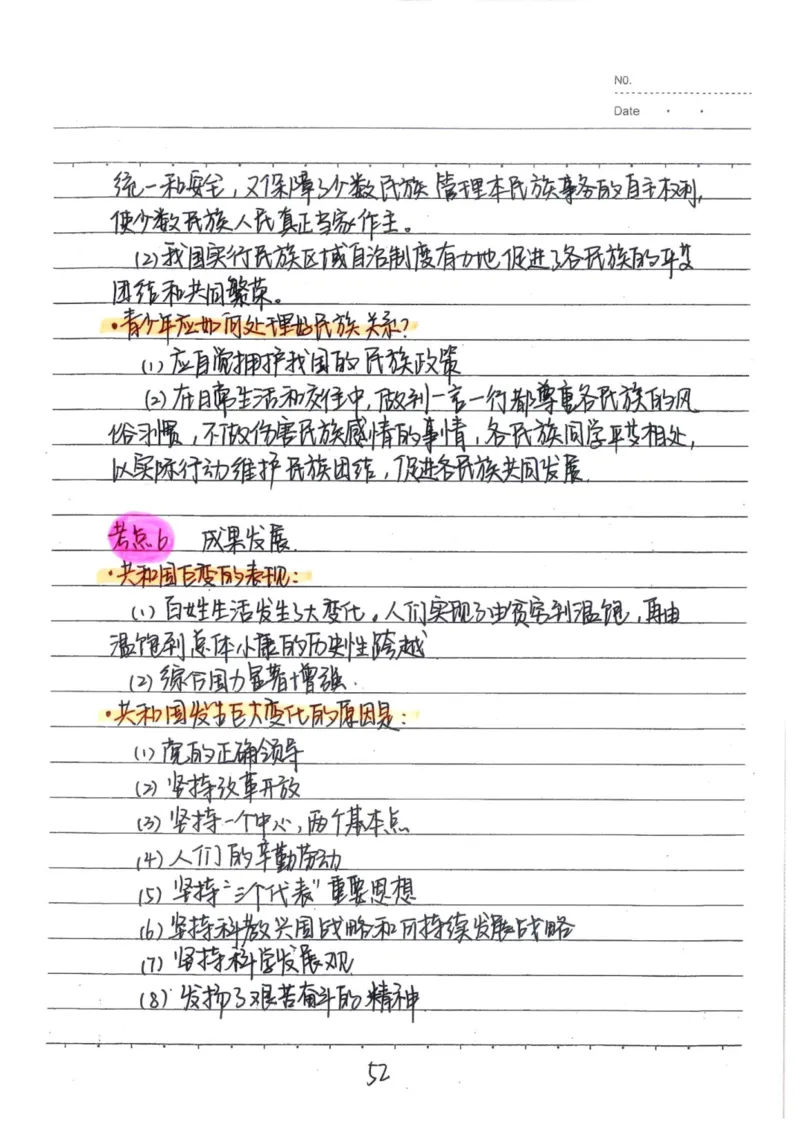 NO.
Date
统一和安全，又保障了少数民族管理本民族事务的自主权利，
使少数民族人民真正当家作主。
(2)我国实行民族区域自治制度有力地促进了各民族的平等
团结和共同繁荣。
·青少年应如何处理好民族关系？
(1)应自觉拥护我国的民族政策
(2)在日常生活和交往中，做到一言一行都尊重各民族的风
俗习惯，不做伤害民族感情的事情，各民族同学平等相处，
以实际行动维护民族团结，促进各民族共同发展.
考点6 成果发展.
·共和国巨变的表现：
(1)百姓生活发生了大变化。人们实现了由贫穷到温饱，再由
温饱到总体小康的历史性跨越
(2)综合国力显著增强.
·共和国发生巨大变化的原因是：
(1)党的正确领导
(2)坚持改革开放
(3)坚持一个中心，两个基本点
(4)人们的辛勤劳动
(5)坚持“三个代表”重要思想
(6)坚持科教兴国战略和可持续发展战略
(7)坚持科学发展观
(8)发扬了艰苦奋斗的精神
52